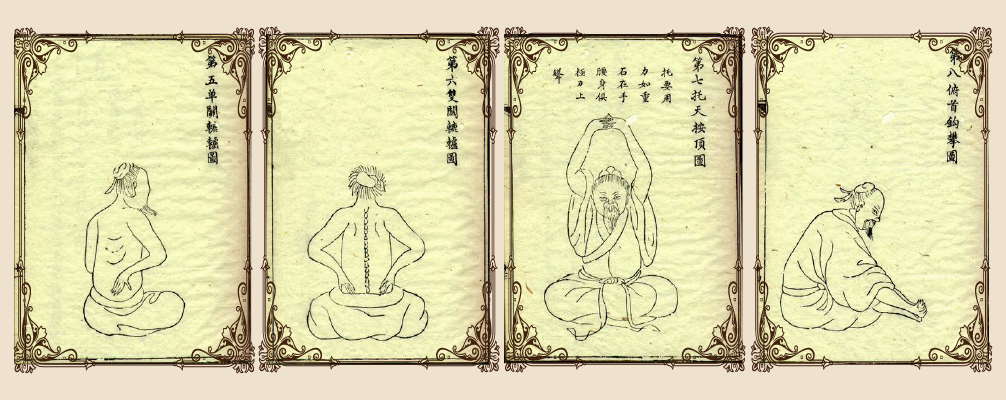 第五单關轆轤圖
第六雙關轆轤圖
第七托天按頂圖
托要用
力如重
石在手
腰身俱
極力上
舉
第八俯首鈎攀圖